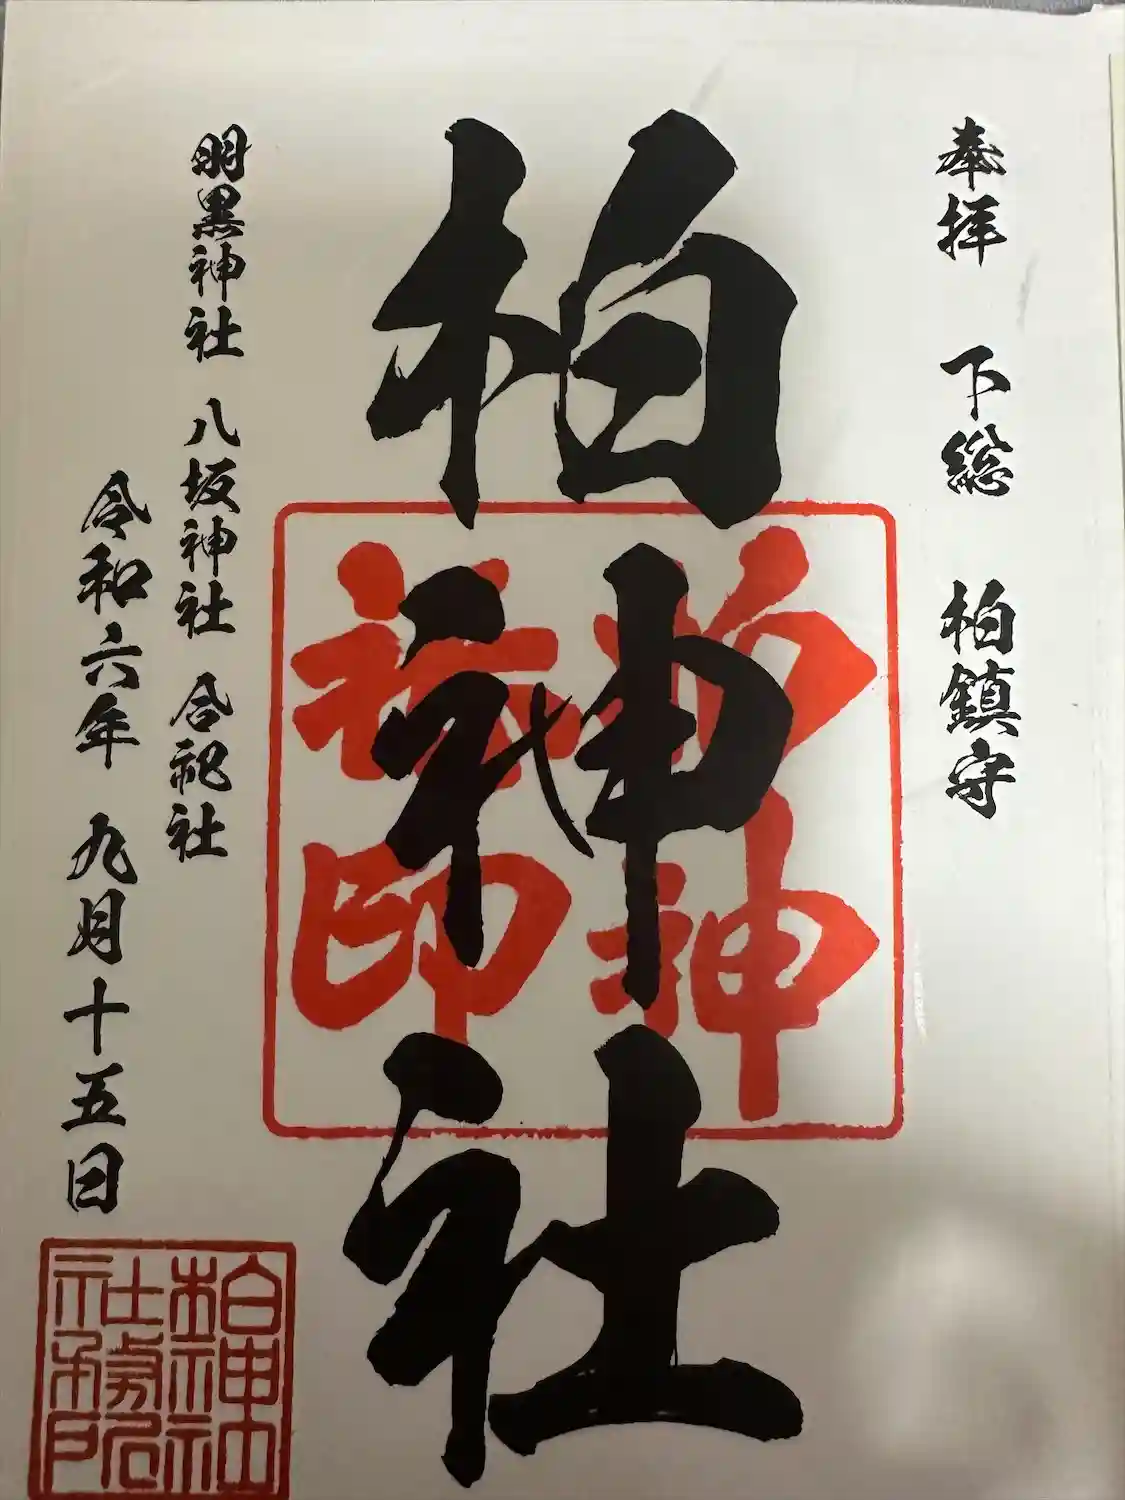 奉拝 下総 柏鎮守
柏神社
神
印
羽黒神社 八坂神社 合祀社
令和六年 九月十五日
柏神社
社務所